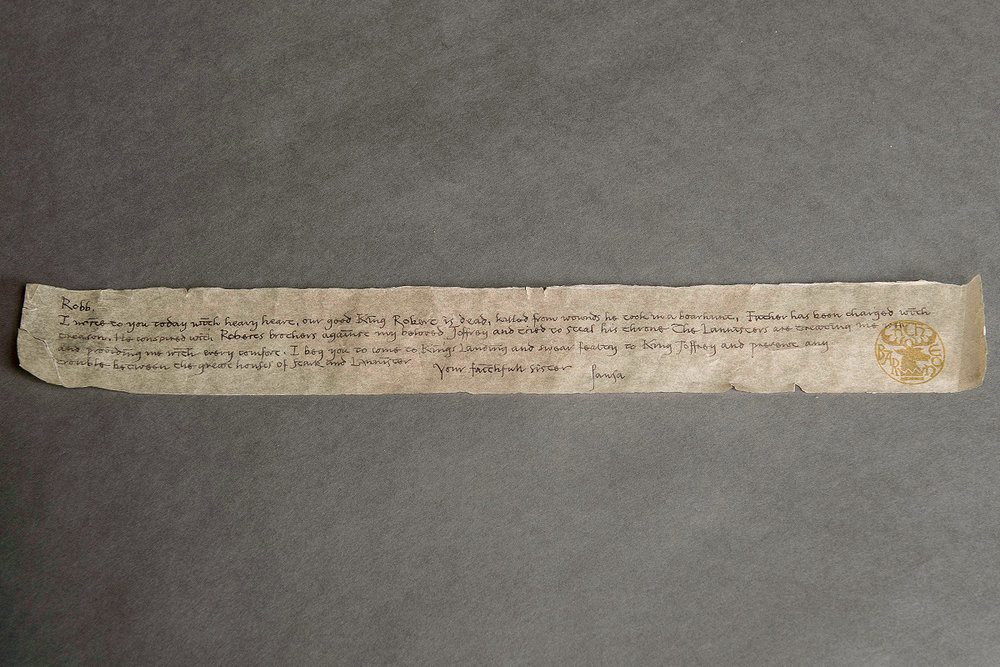 Robb,
I write to you today with heavy heart, our good King Robert is dead, killed from wounds he took in a boarhunt, Father has been charged with
treason. He conspired with Roberts brothers against my beloved Joffrey and tried to steal his throne The Lannisters are treating me
and providing me with every comfort. I beg you to come to Kings Landing and swear fealty to King Joffrey and prevent any
trouble between the great houses of Stark and Lannister
Your faithfull sister Sansa